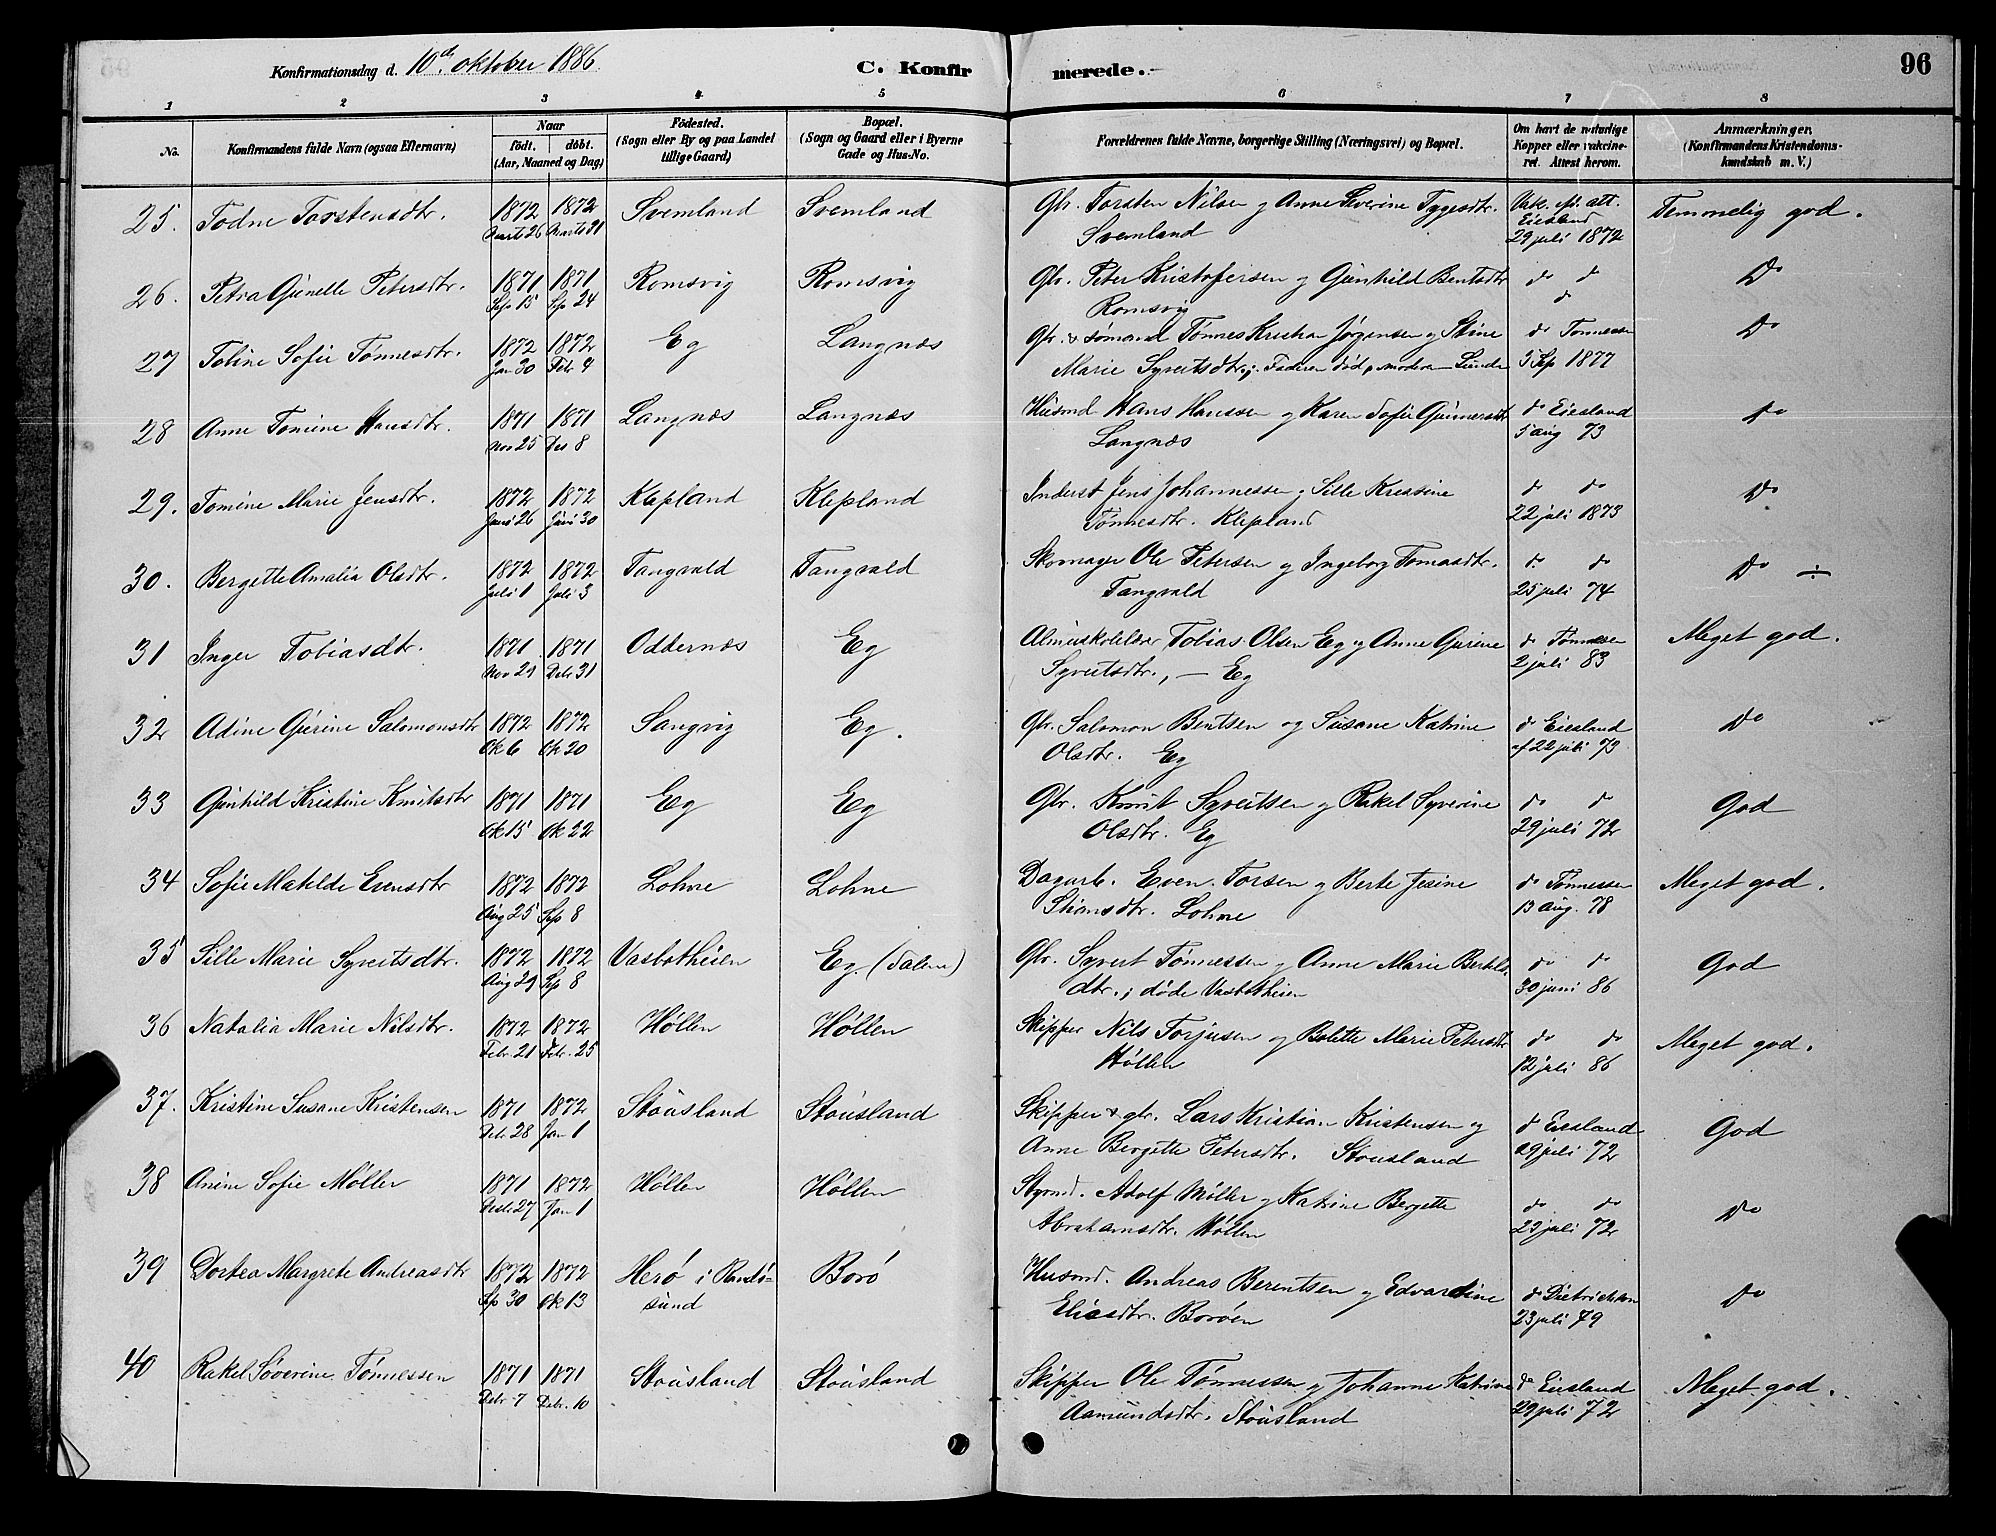 Konfirmationsdag d. 10de oktober 1886. C. Konfirmerede. 96
1 2 3 4 5 6 7 8
No. Konfirmandens fulde Navn (ogsaa Efternavn) Naar født. døbt. (Aar, Maaned og Dag) Fødested. (Sogn eller By og paa Landet tillige Gaard) Bopæl. (Sogn og Gaard eller i Byerne Gade og Hus-No. Forældrenes fulde Navne, borgerlige Stilling (Næringsvei) og Bopæl. Om havt de naturlige Kopper eller vakcineret. Attest herom. Anmærkninger. (Konfirmandens Kristendomskundskab m. V.)
25. Todne Torstensdtr. 1872 1872 Svemland Svemland Gbr. Torsten Nilsen og Anne Severine Tygesdtr. Vak. att. Eiesland Temmelig god.
Marts 26 Marts 31 Svemland 29 juli 1872
26. Petra Gunelle Petersdtr. 1871 1871 Romsvig Romsvig Gbr. Peter Kristofersen og Gunhild Bentsdtr do do Do
Sep 15 Sep 24 Romsvig do
27 Tobine Sofie Tønnesdtr. 1872 1872 Eg Langnæs Gbr. & sømand Tønnes Kristian Jørgensen og Stine do Tønnessen Do
Jan 30 Febr 4 Marie Syvertsdtr.; Faderen død, moderen Lunde 3 Sep 1877
28 Anne Tomine Hansdtr. 1871 1871 Langnæs Langnæs Husmd Hans Hanssen og Karen Sofie Gunnersdtr do Eiesland Do
Nov 25 Des 8 Langnæs 5 aug 73
29. Tomine Marie Jensdtr. 1872 1872 Klepland Klepland Inderst Jens Johannessen og Sille Kristine do do Do
Juni 26 Juni 30 Tønnesdtr. Klepland 22 juli 1873
30. Bergette Amalia Olsdtr. 1872 1872 Tangvald Tangvald Skomager Ole Petersen og Ingeborg Tomasdtr. do do Do ÷
Juli 1 Juli 3 Tangvald 25 juli 74
31 Inger Tobiasdtr. 1871 1871 Oddernæs Eg Almueskolelærer Tobias Olsen Eg og Anne Gurine do Tønnessen Meget god.
Nov 29 Debr 31 Syvertsdtr., — Eg 2 juli 83
32 Adine Gurine Salomonsdtr 1872 1872 Langvig Eg. Gbr. Salomon Bentsen og Susane Katrine do Eiesland Do
Ok 6 Ok 20 Olsdtr. Eg af 22 juli 73
33 Gunhild Kristine Knutsdtr 1871 1871 Eg Eg Gbr. Knut Syvertsen og Rakel Syverine do do God
Ok 15 Ok 22 Olsdtr. Eg 29 juli 72
34 Sofie Matilde Evensdtr 1872 1872 Lohne Lohne Dagarb. Even Torsen og Berte Jesine do Tønnessen Meget god.
Aug 25 Sep 8 Stiansdtr. Lohne 13 aug. 78
35 Sille Marie Syvertsdtr. 1872 1872 Vasbotheien Eg. (Salem) Gbr. Syvert Tønnessen og Anne Marie Bertels- do do God
Aug 29 Sep 8 dtr.; døde Vasbotheien 30 juni 86
36 Natalia Marie Nilsdtr. 1872 1872 Høllen Høllen Skipper Nils Torjusen og Bolette Marie Petersdtr do do Meget god.
Febr. 21 Febr. 25 Høllen 12 juli 86
37. Kristine Susane Kristensen 1871 1872 Stousland Stousland Skipper & gbr. Lars Kristian Kristensen og do Eiesland God
Debr 28 Jan 1 Anne Bergette Petersdtr. Stousland 29 juli 72
38 Anine Sofie Møller 1871 1872 Høllen Høllen Styrmd. Adolf Møller og Katrine Bergette do do Do
Desbr 27 Jan 1 Abrahamsdtr. Høllen 29 juli 72
39 Dortea Margrete Andreasdtr 1872 1872 Herø i Randø- Borø Husmd. Andreas Berentsen og Edvardine do Dietrichson Do
Sp 30 Ok 13 sund Eliasdtr. Borøen 23 juli 79
40 Rakel Søverine Tønnessen 1871 1871 Stousland Stousland Skipper Ole Tønnessen og Johanne Katrine do Eiesland Meget god.
Debr 7 Debr. 10 Aamundsdtr. Stousland 29 juli 72